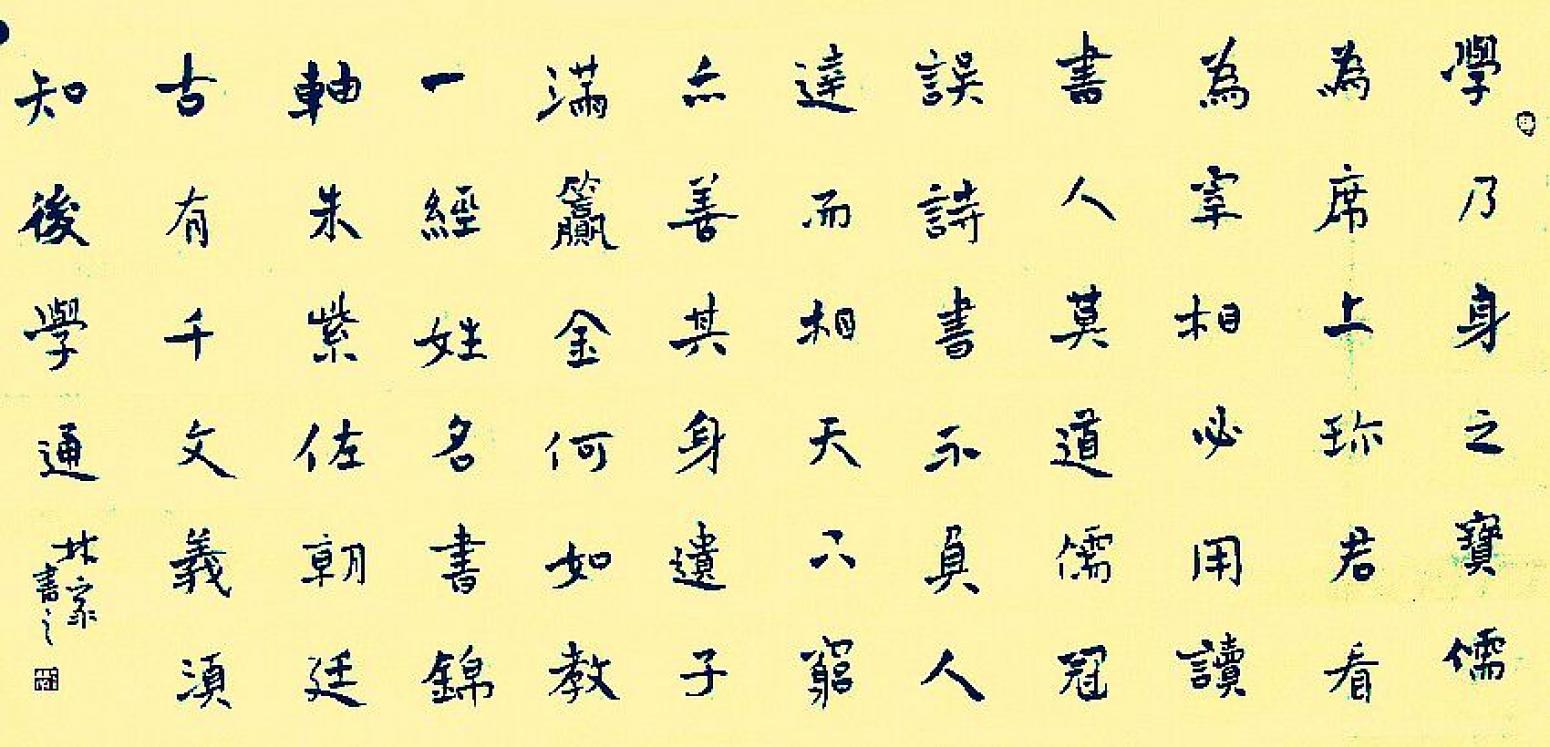 學乃身之寶儒
為席上珎君看
為宰相必用讀
書人莫道儒冠
誤詩書不負人
達而相天下窮
亦善其身遺子
滿籯金何如教
一經姓名書錦
軸朱紫佐朝廷
古有千文義湏
知後學通
林家
書之